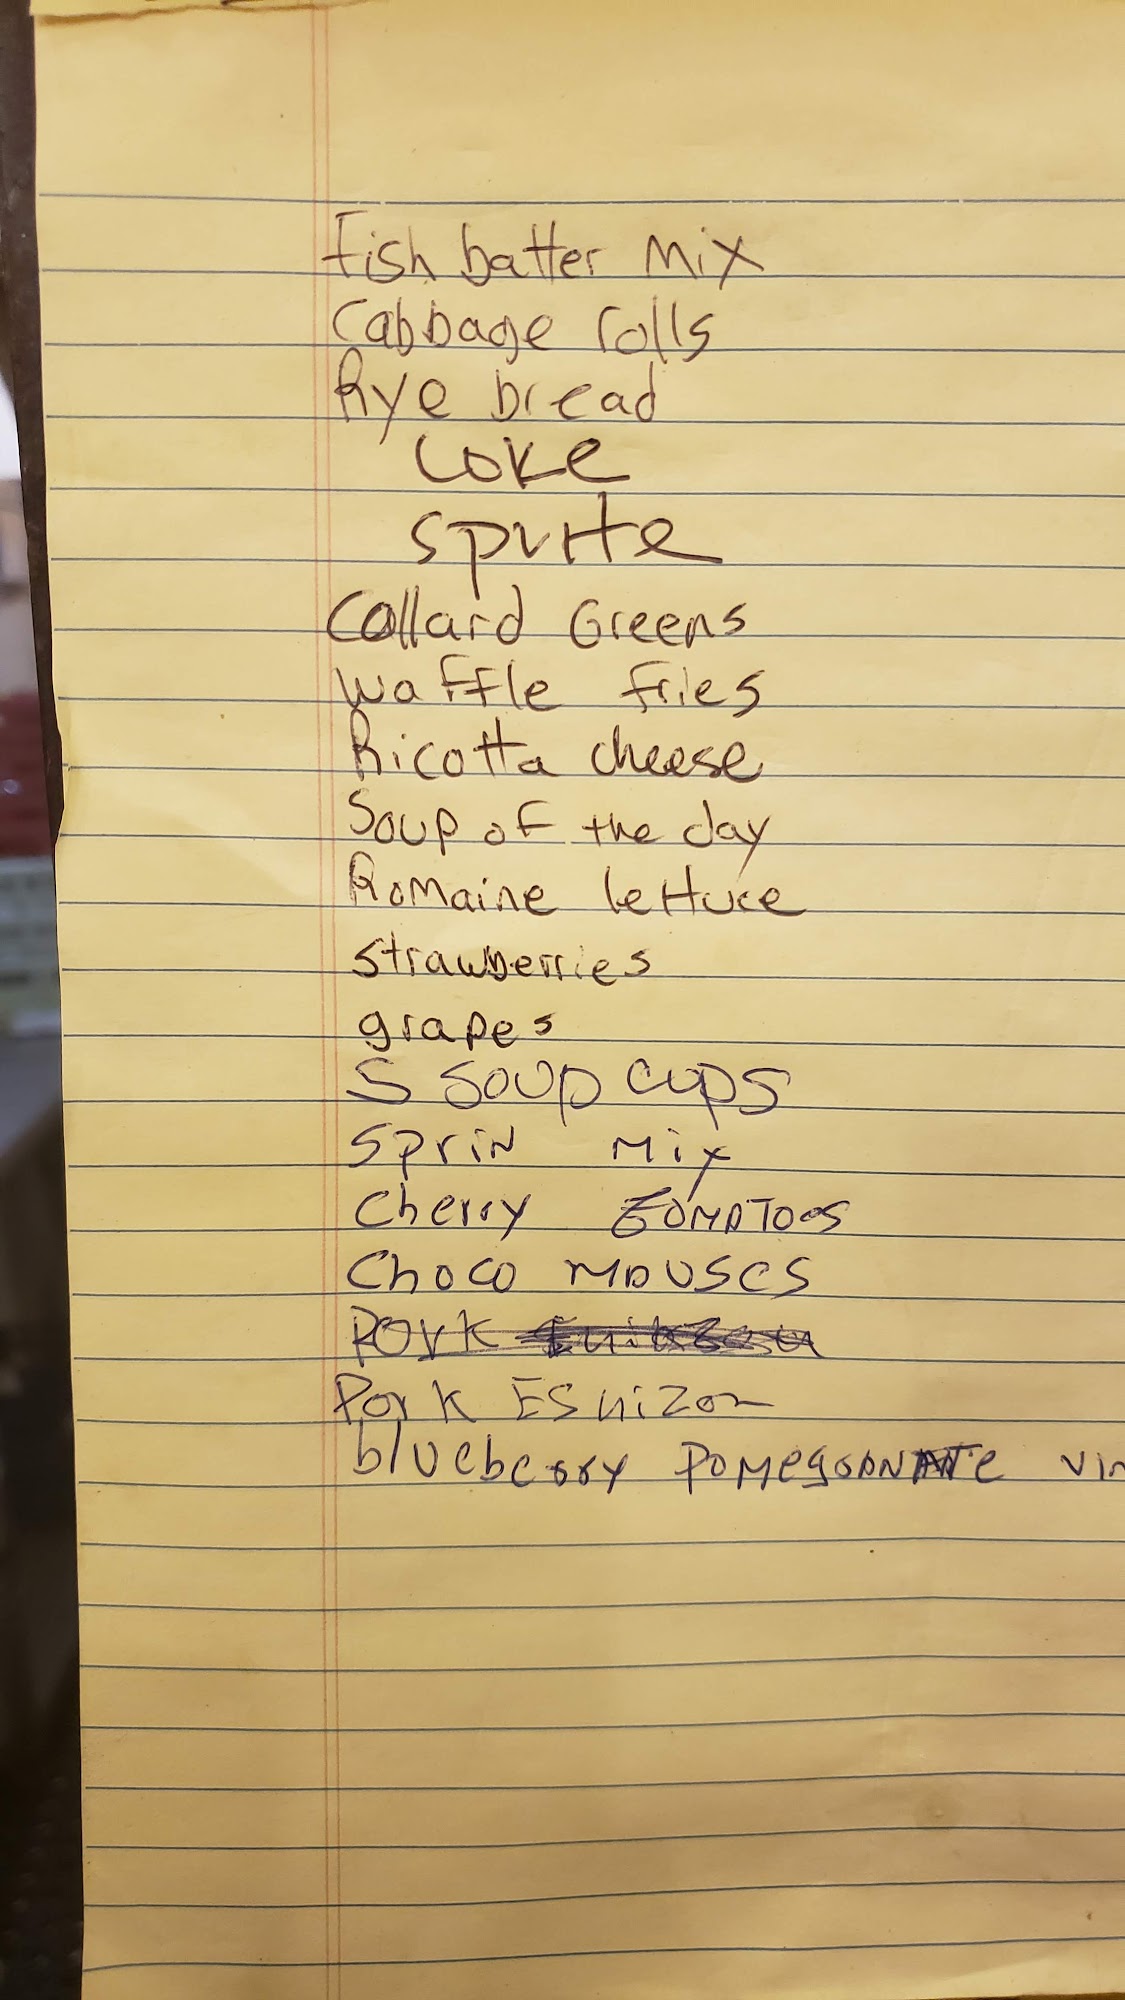 Fish batter mix
Cabbage rolls
Rye bread
Coke
sprite
Collard Greens
waffle fries
Ricotta cheese
Soup of the day
Romaine lettuce
strawberries
grapes
S soup cups
sprin mix
cherry tomatoes
choco mouses
Pork
Pork
blueberry pomegranate vin